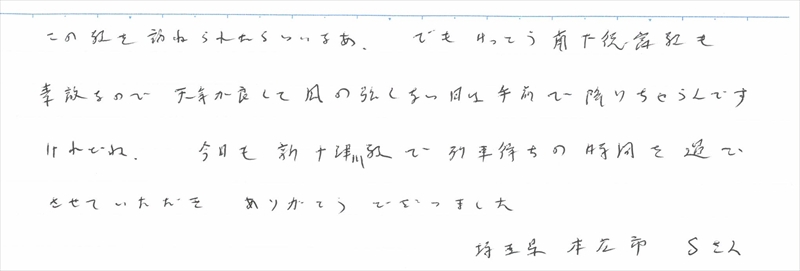 この駅を訪ねられたらいいなあ． でもけっこう南下徳富駅も
素敵なので 天気が良くて風の強くない日は手前で降りちゃうんです
けれどね． 今日も新十津川駅で列車待ちの時間を過ご
させていただき ありがとうございました
埼玉県 本庄市 Sさん